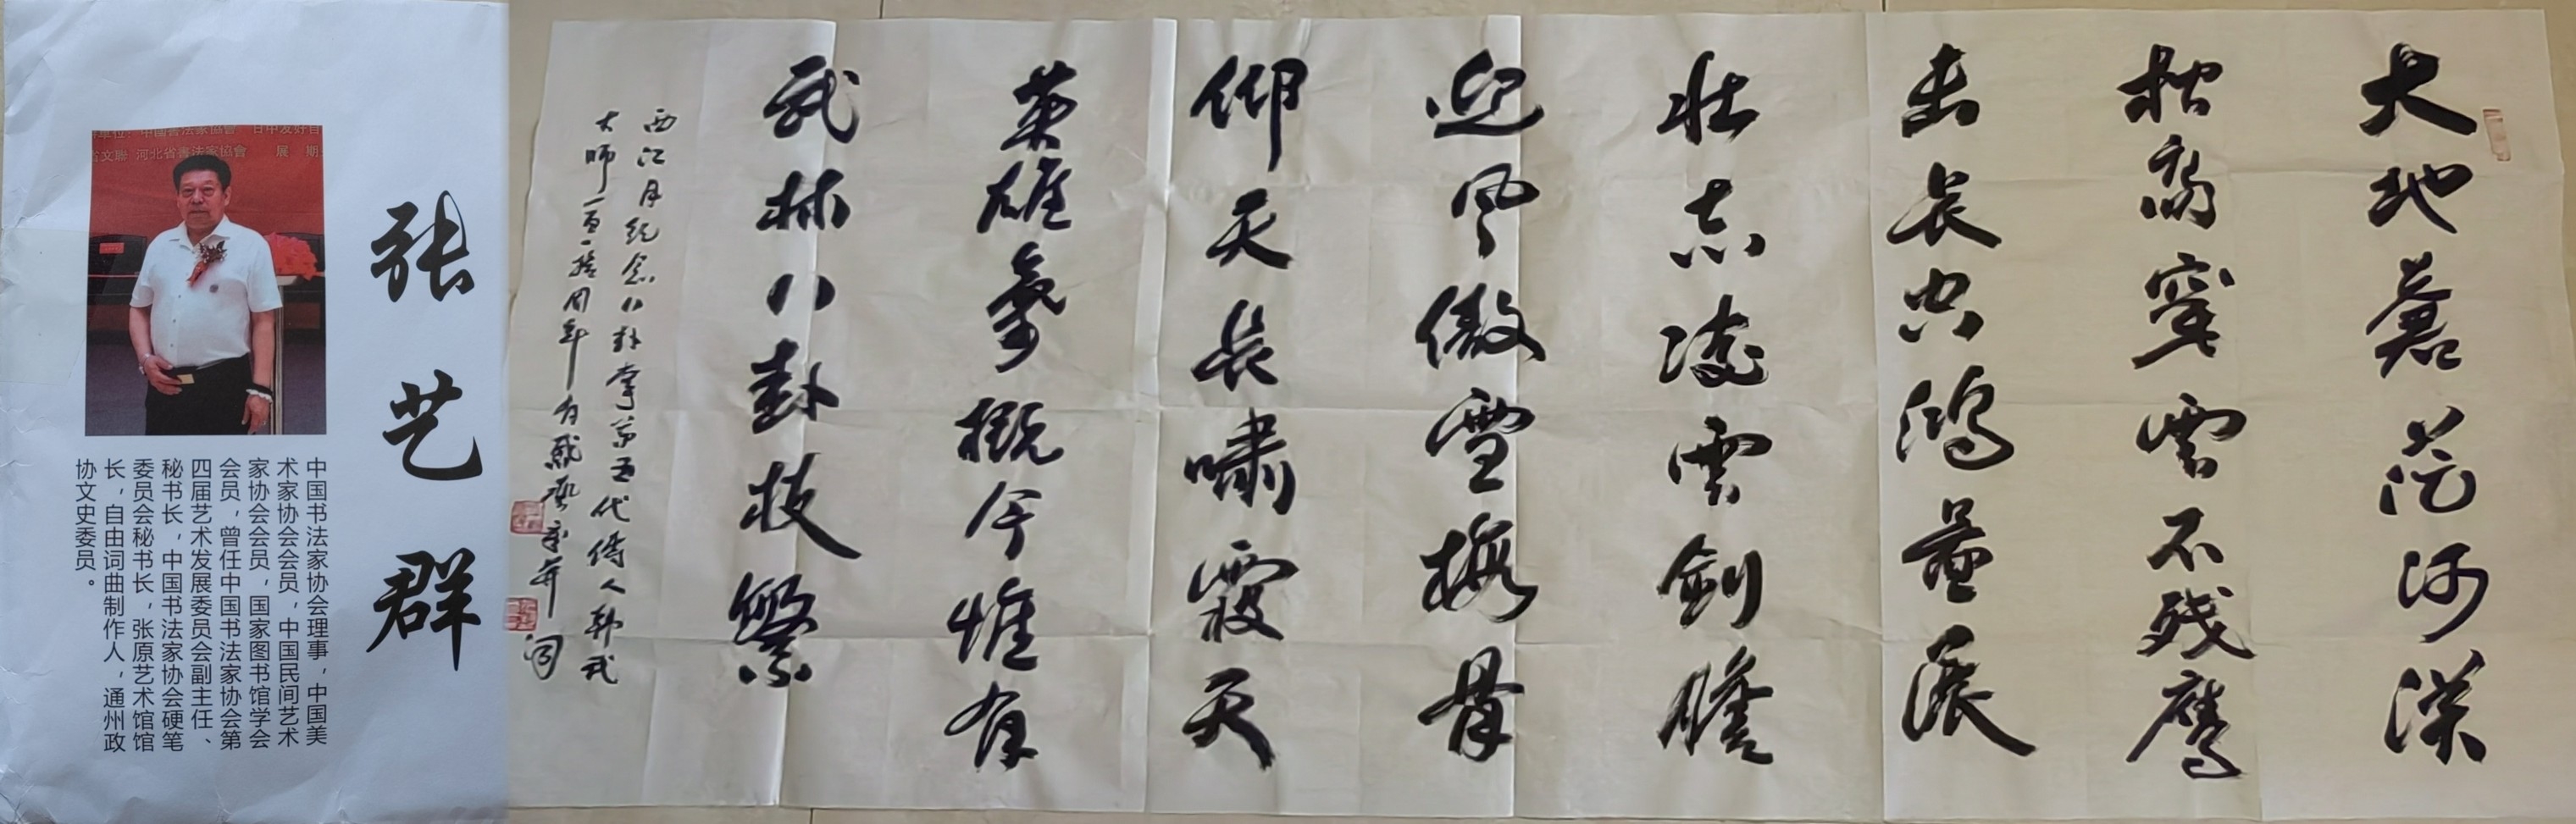 张艺群
单位：中国書法家協會 日中友好
省文聯 河北省書法家協會 展 期
中国书法家协会理事，中国美
术家协会会员，中国民间艺术
家协会会员，国家图书馆学会
会员，曾任中国书法家协会第
四届艺术发展委员会副主任、
秘书长，中国书法家协会硬笔
委员会秘书长，张原艺术馆馆
长，自由词曲制作人，通州政
协文史委员。
大地蒼茫河漢
松高穿雲不残鷹
击长空鸿畫展
壮志凌雲剑膽
迎风傲雪梅骨
仰天长嘯霞天
英雄氣概今惟有
武林八卦枝繁
西江月纪念八卦掌第五代傳人韩武
大师一百一拾周年有感 并词